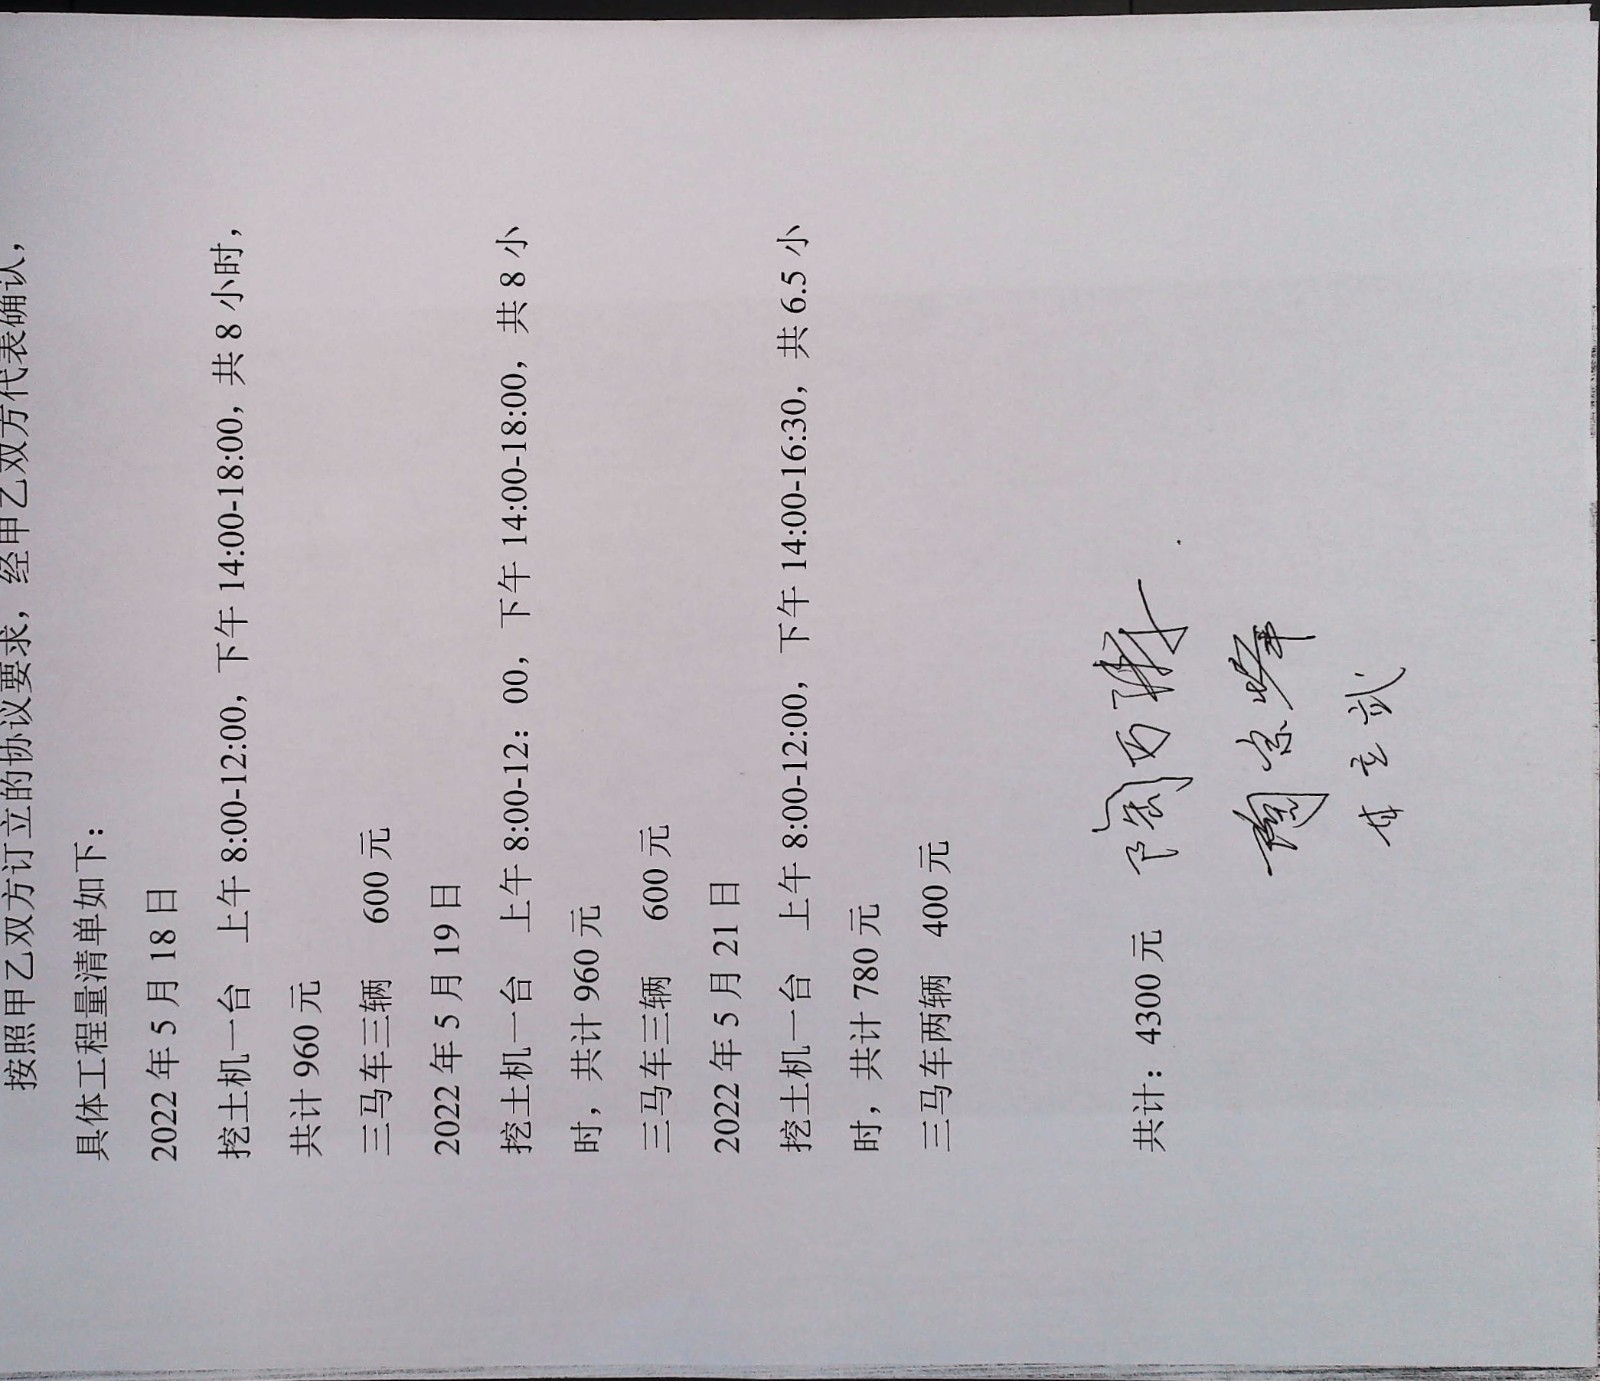 按照甲乙双方订立的协议要求，经甲乙双方代表确认，
具体工程量清单如下：
2022 年 5 月 18 日
挖土机一台 上午 8:00-12:00，下午 14:00-18:00，共 8 小时，
共计 960 元
三马车三辆 600 元
2022 年 5 月 19 日
挖土机一台 上午 8:00-12：00，下午 14:00-18:00，共 8 小
时，共计 960 元
三马车三辆 600 元
2022 年 5 月 21 日
挖土机一台 上午 8:00-12:00，下午 14:00-16:30，共 6.5 小
时，共计 780 元
三马车两辆 400 元
共计：4300 元